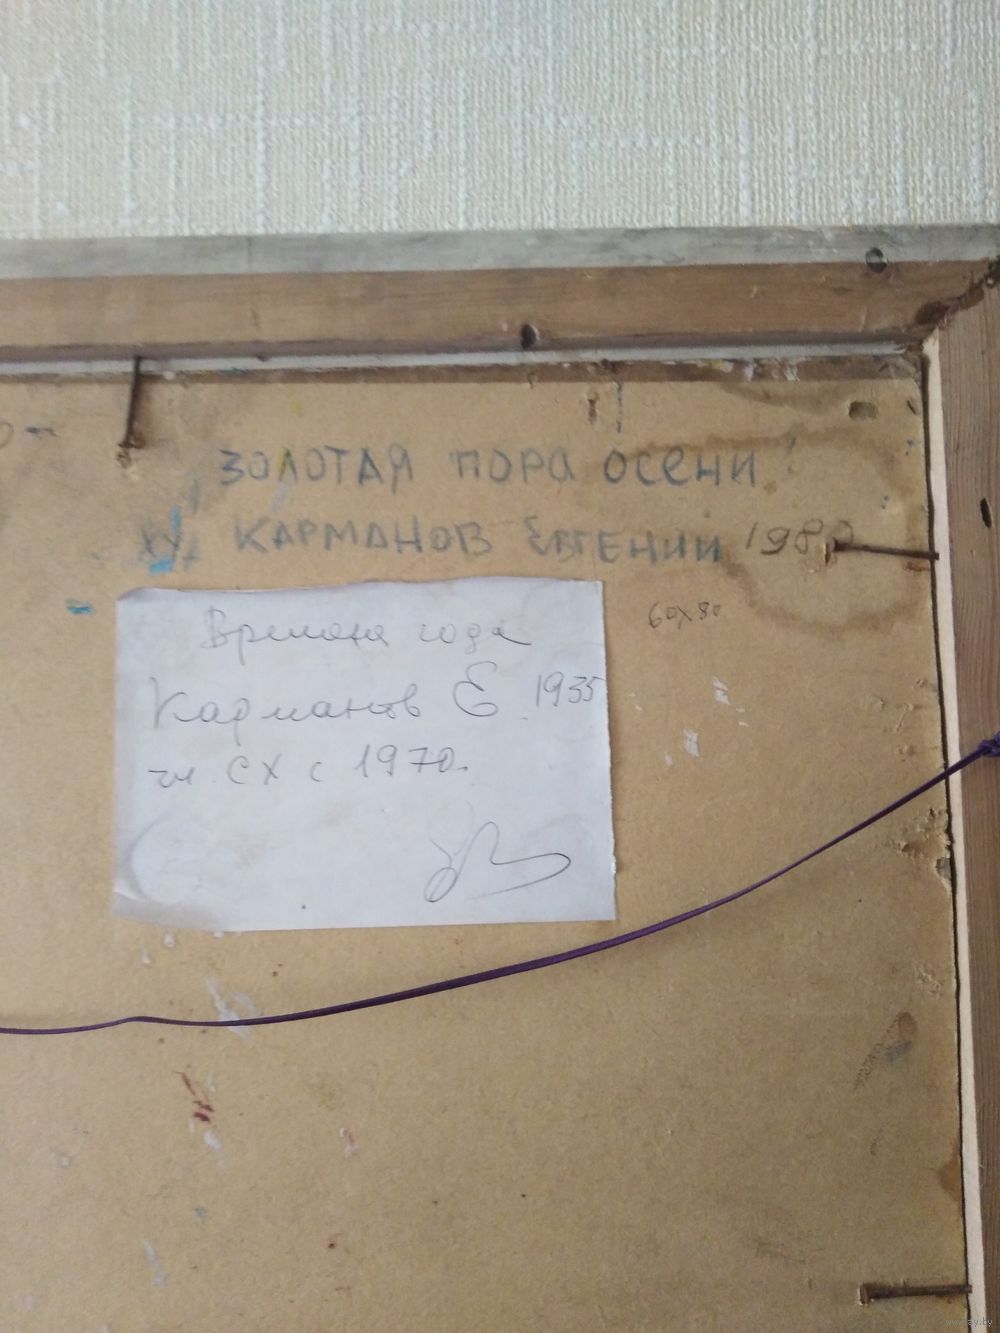 ЗОЛОТАЯ ПОРА ОСЕНИ
ХУ. КАРМАНОВ ЕВГЕНИЙ 198
60х80
Времена года
Карманов Е. 1935
чл. СХ с 1970.